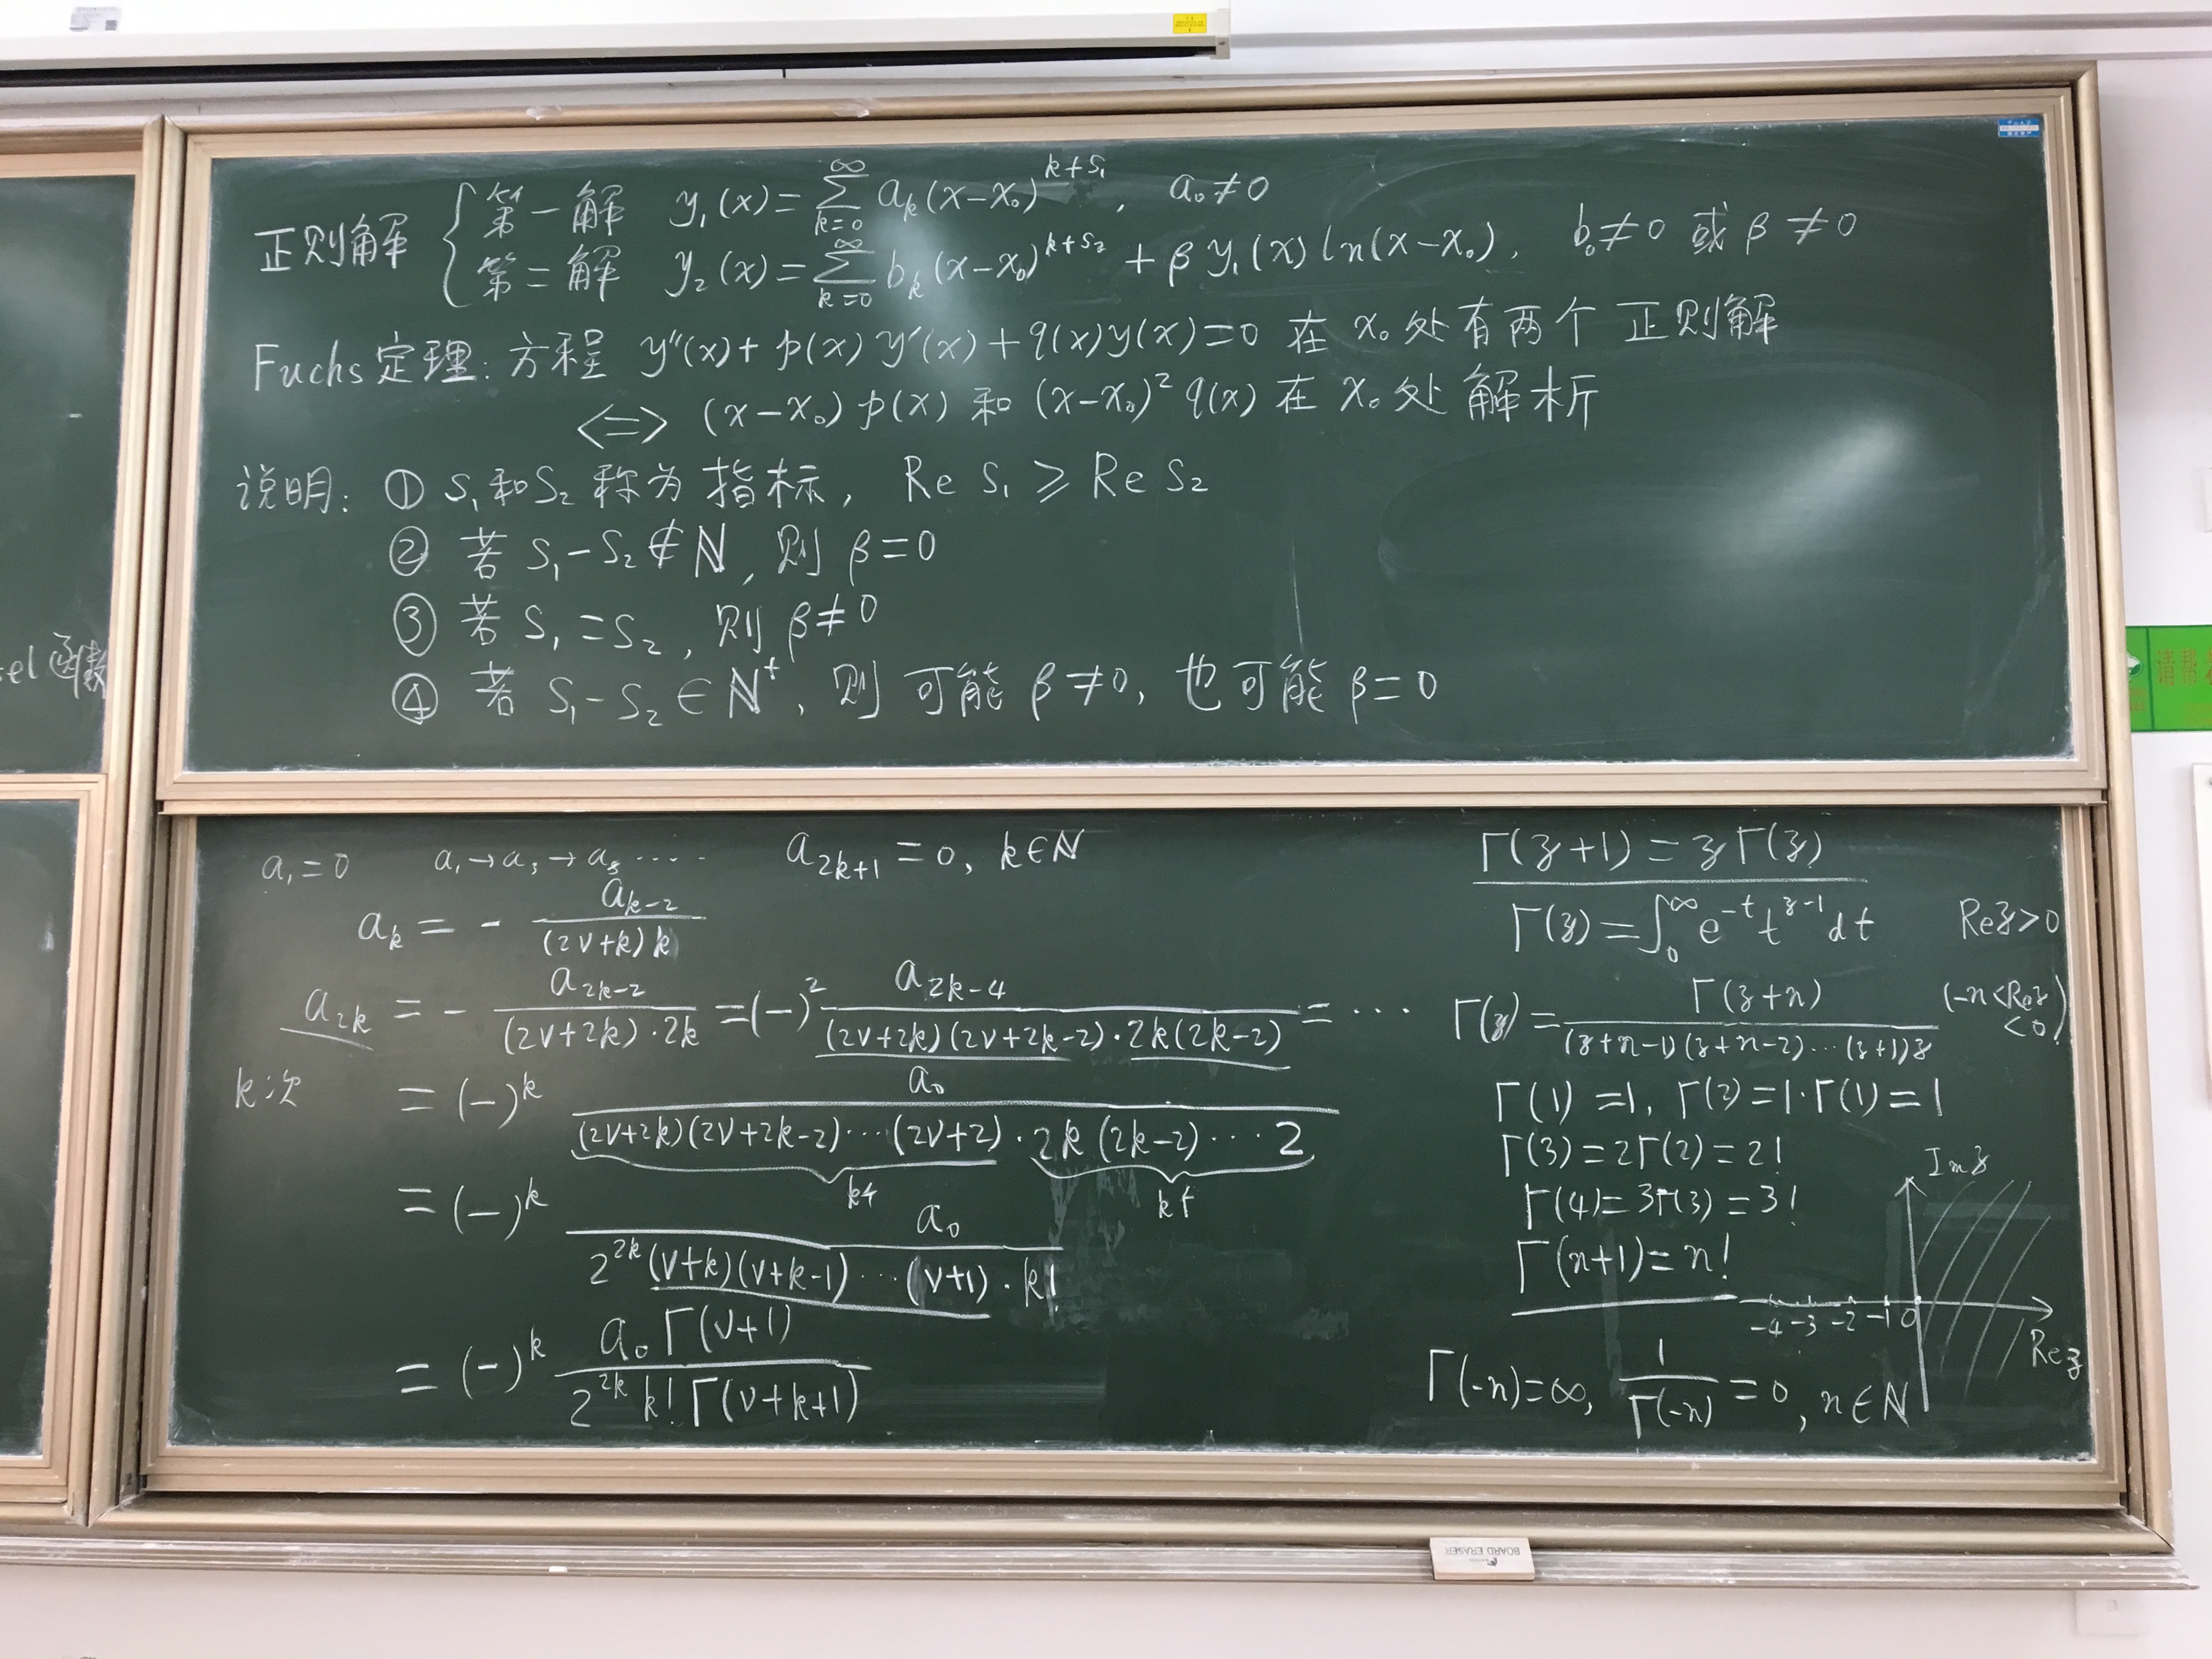 正则解 { 第一解 y₁(x) = ∑_{k=0}^{∞} a_k (x-x₀)^{k+s₁}, a₀≠0
第二解 y₂(x) = ∑_{k=0}^{∞} b_k (x-x₀)^{k+s₂} + β y₁(x) ln(x-x₀), b₀≠0 或 β≠0
Fuchs定理: 方程 y''(x) + p(x) y'(x) + q(x) y(x) = 0 在 x₀ 处有两个正则解
<=> (x-x₀) p(x) 和 (x-x₀)² q(x) 在 x₀ 处解析
说明: ① s₁和s₂称为指标, Re s₁ ⩾ Re s₂
② 若 s₁-s₂∉ℕ, 则 β=0
③ 若 s₁=s₂, 则 β≠0
④ 若 s₁-s₂∈ℕ⁺, 则可能 β≠0, 也可能 β=0
el 函数
a₁=0 a₁→a₃→a₅ ····· a_{2k+1}=0, k∈ℕ
a_k = - a_{k-2} / (2ν+k)k
a_{2k} = - a_{2k-2} / (2ν+2k)·2k = (-)² a_{2k-4} / (2ν+2k)(2ν+2k-2)·2k(2k-2) = ···
k次 = (-)^k a₀ / (2ν+2k)(2ν+2k-2)···(2ν+2)·2k(2k-2)···2
k个 k个
= (-)^k a₀ / 2^{2k}(ν+k)(ν+k-1)···(ν+1)·k!
= (-)^k a₀Γ(ν+1) / 2^{2k} k! Γ(ν+k+1)
Γ(z+1) = zΓ(z)
Γ(z) = ∫₀^∞ e^{-t} t^{z-1} dt Re z>0
Γ(z) = Γ(z+n) / (z+n-1)(z+n-2)···(z+1)z (-n<Re z<0)
Γ(1)=1, Γ(2)=1·Γ(1)=1
Γ(3)=2Γ(2)=2!
Γ(4)=3Γ(3)=3!
Γ(n+1)=n!
Im z
-4 -3 -2 -1 0
Re z
Γ(-n)=∞, 1/Γ(-n)=0, n∈ℕ
BOARD ERASER
请帮